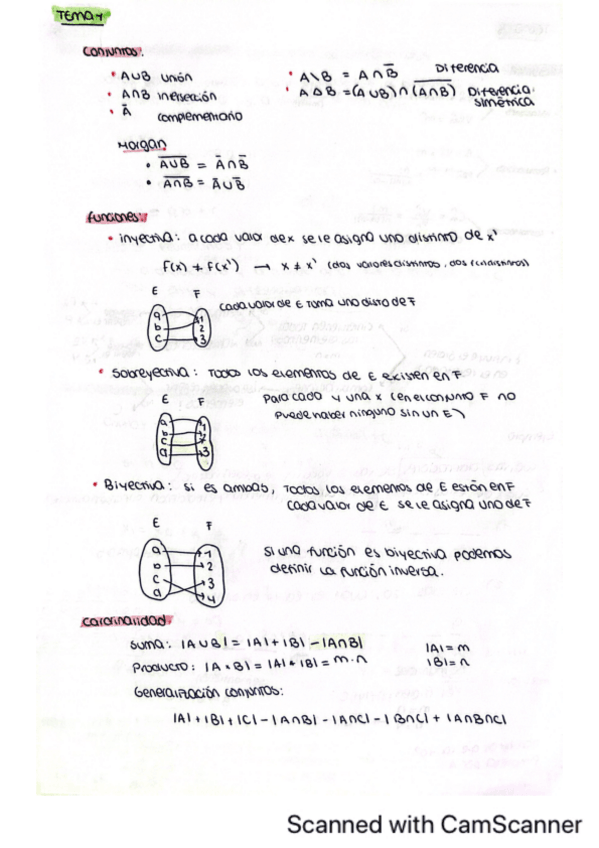 TEMA 4
Conjuntos:
• A∪B unión
• A∩B intersección
• Ā complementario
• A\B = A∩B̅ Diferencia
• A△B = (A∪B)∩(A̅∩̅B̅) Diferencia simétrica
Morgan
• A̅∪̅B̅ = A̅∩B̅
• A̅∩̅B̅ = A̅∪B̅
funciones:
• inyectiva: a cada valor de x se le asigna uno distinto de x'
F(x) ≠ F(x') → x ≠ x' (dos valores distintos, dos f(x) distintos)
E F
cada valor de E toma uno disto de F
a 1
b 2
c 3
• Sobreyectiva: Todos los elementos de E existen en F
E F
Para cada y una x (en el conjunto F no
puede haber ninguno sin un E)
a 1
b
c 2
d 3
• Biyectiva: si es ambas, Todos los elementos de E están en F
cada valor de E se le asigna uno de F
E F
a 1
b 2
c 3
d 4
Si una función es biyectiva podemos
definir la función inversa.
cardinalidad.
Suma: |A∪B| = |A|+|B|-|A∩B|
|A| = m
Producto: |A×B| = |A|*|B| = m·n
|B| = n
Generalización conjuntos:
|A|+|B|+|C|-|A∩B|-|A∩C|-|B∩C|+|A∩B∩C|
Scanned with CamScanner